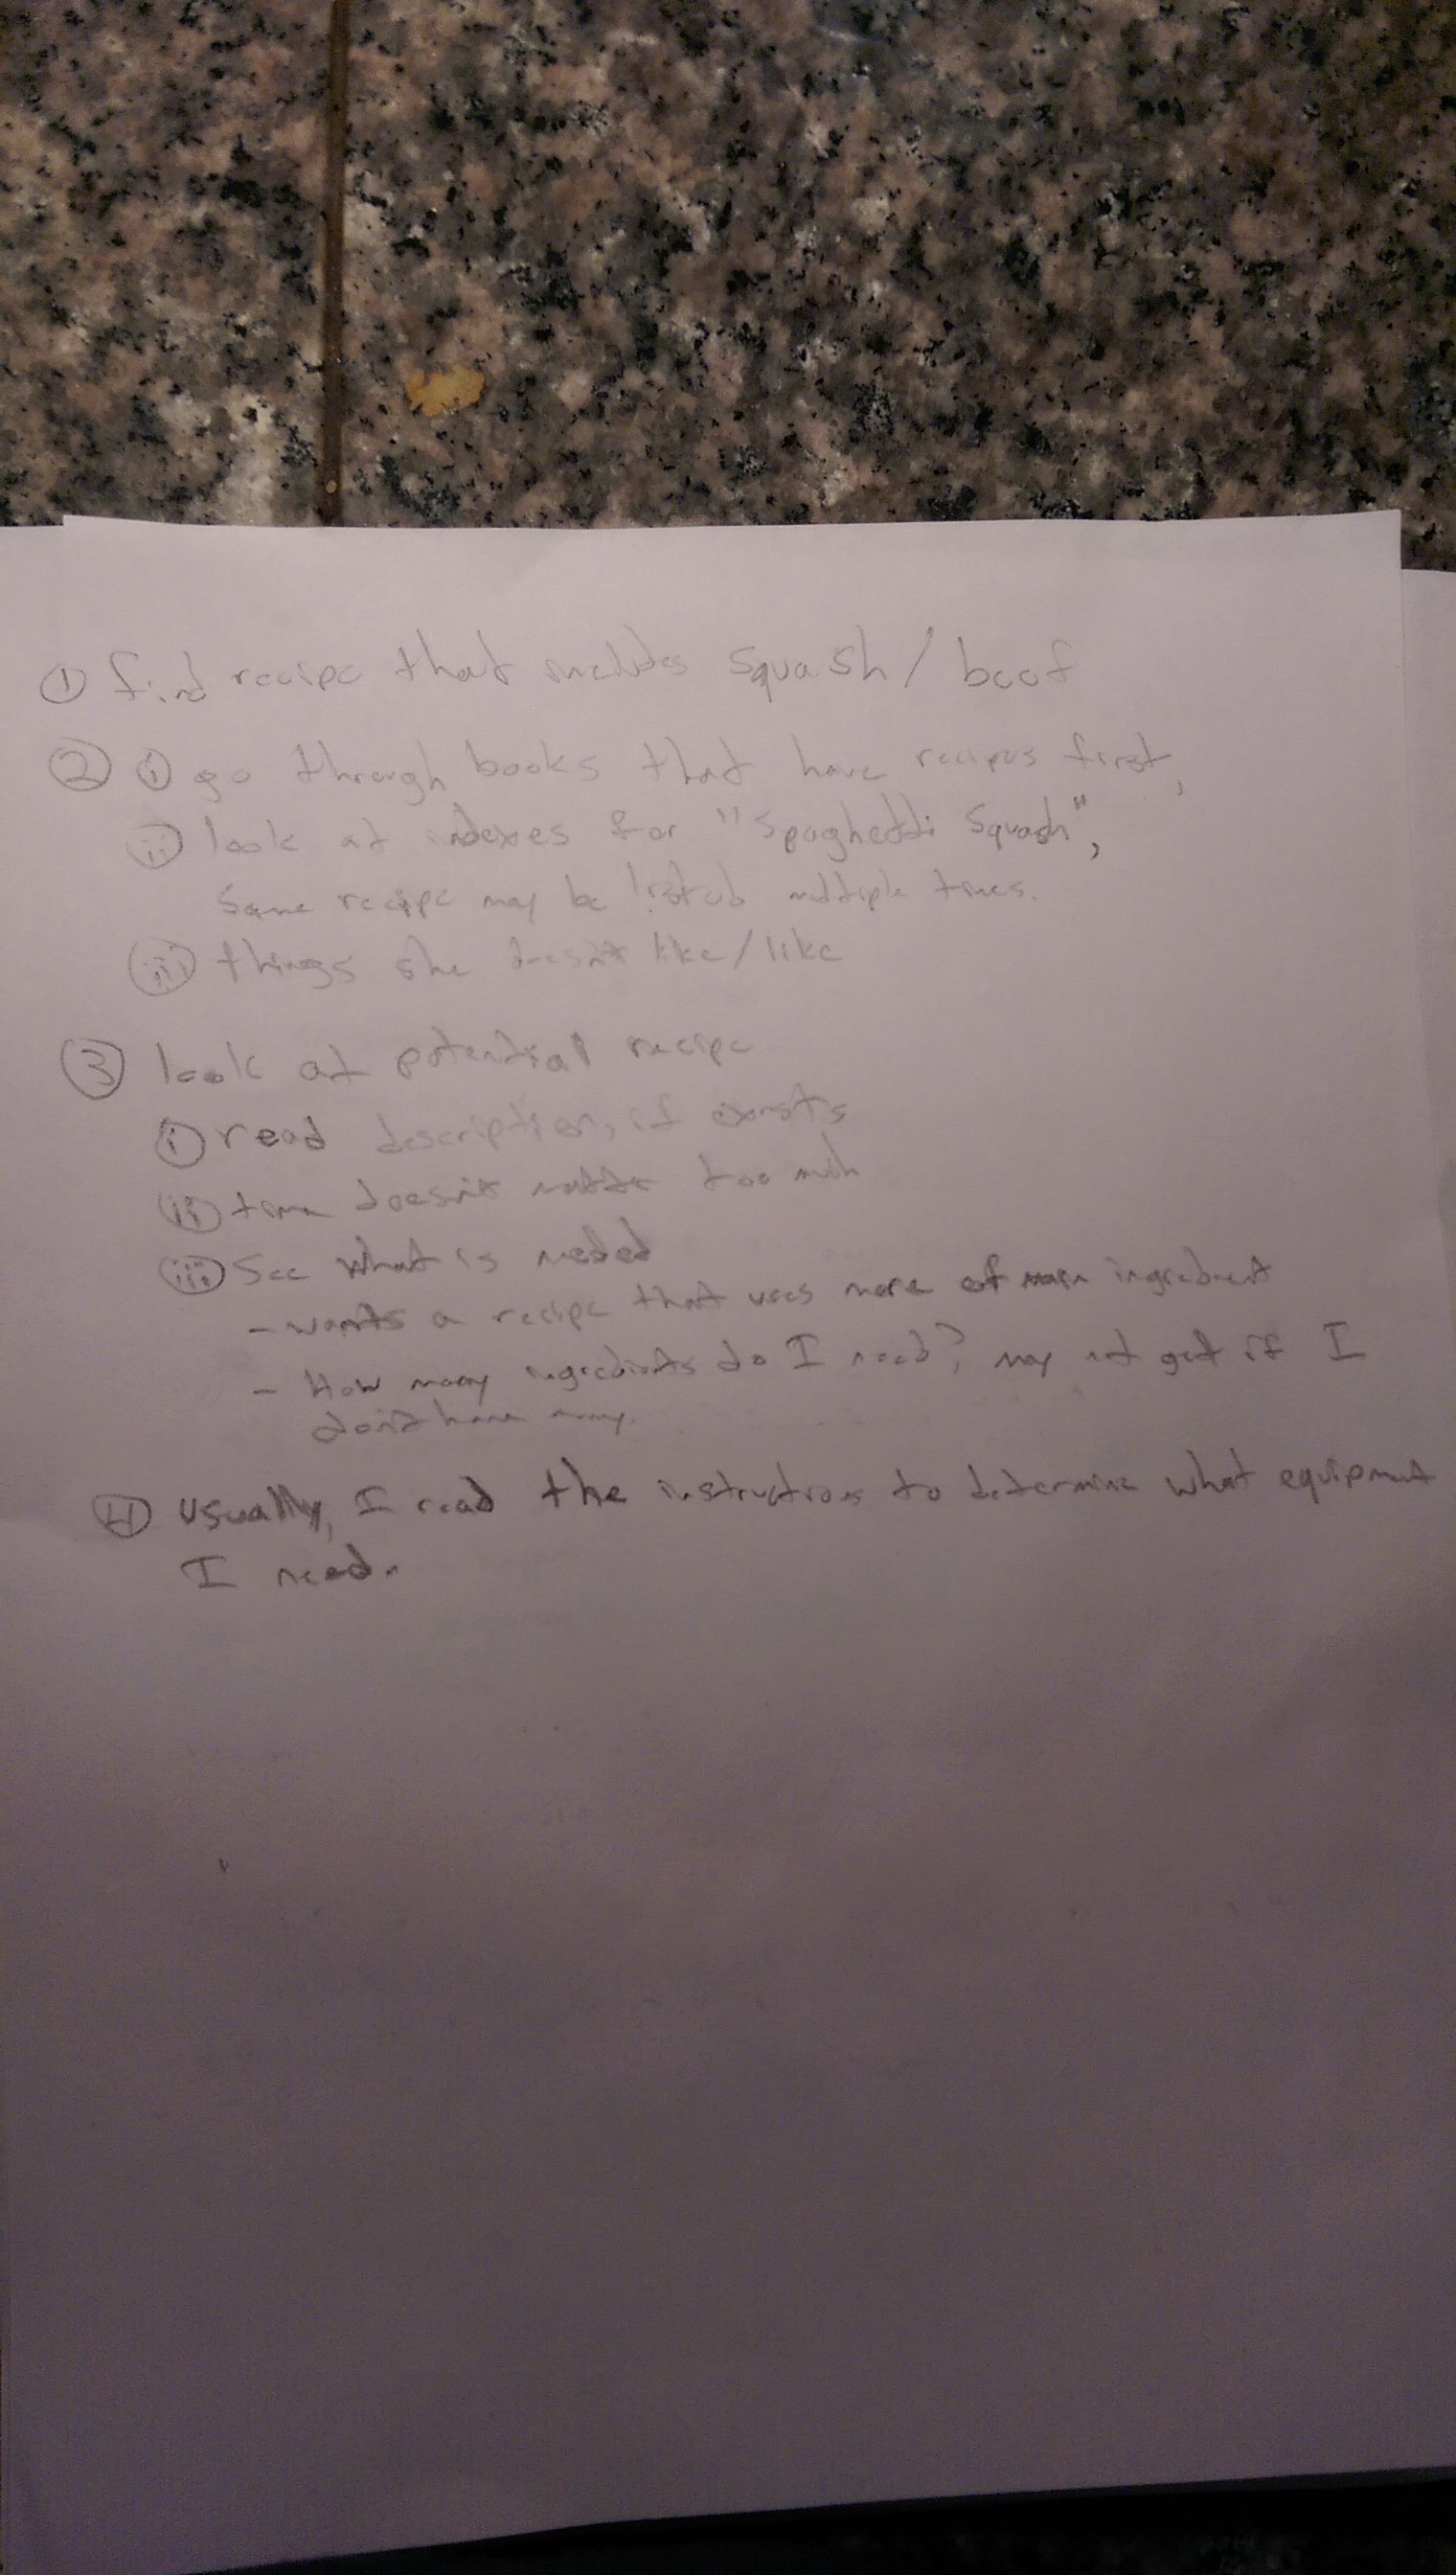 ① find recipe that includes squash / beef
② ⓘ go through books that have recipes first,
ⓘⓘ look at indexes for "Spaghetti Squash",
Same recipe may be listed multiple times.
ⓘⓘⓘ things she doesn't like / like
③ look at potential recipe
ⓘ read description, if exists
ⓘⓘ time doesn't matter too much
ⓘⓘⓘ See what is needed
- wants a recipe that uses more of main ingredient
- How many ingredients do I need? may not get if I
don't have many.
④ Usually, I read the instructions to determine what equipment
I need.